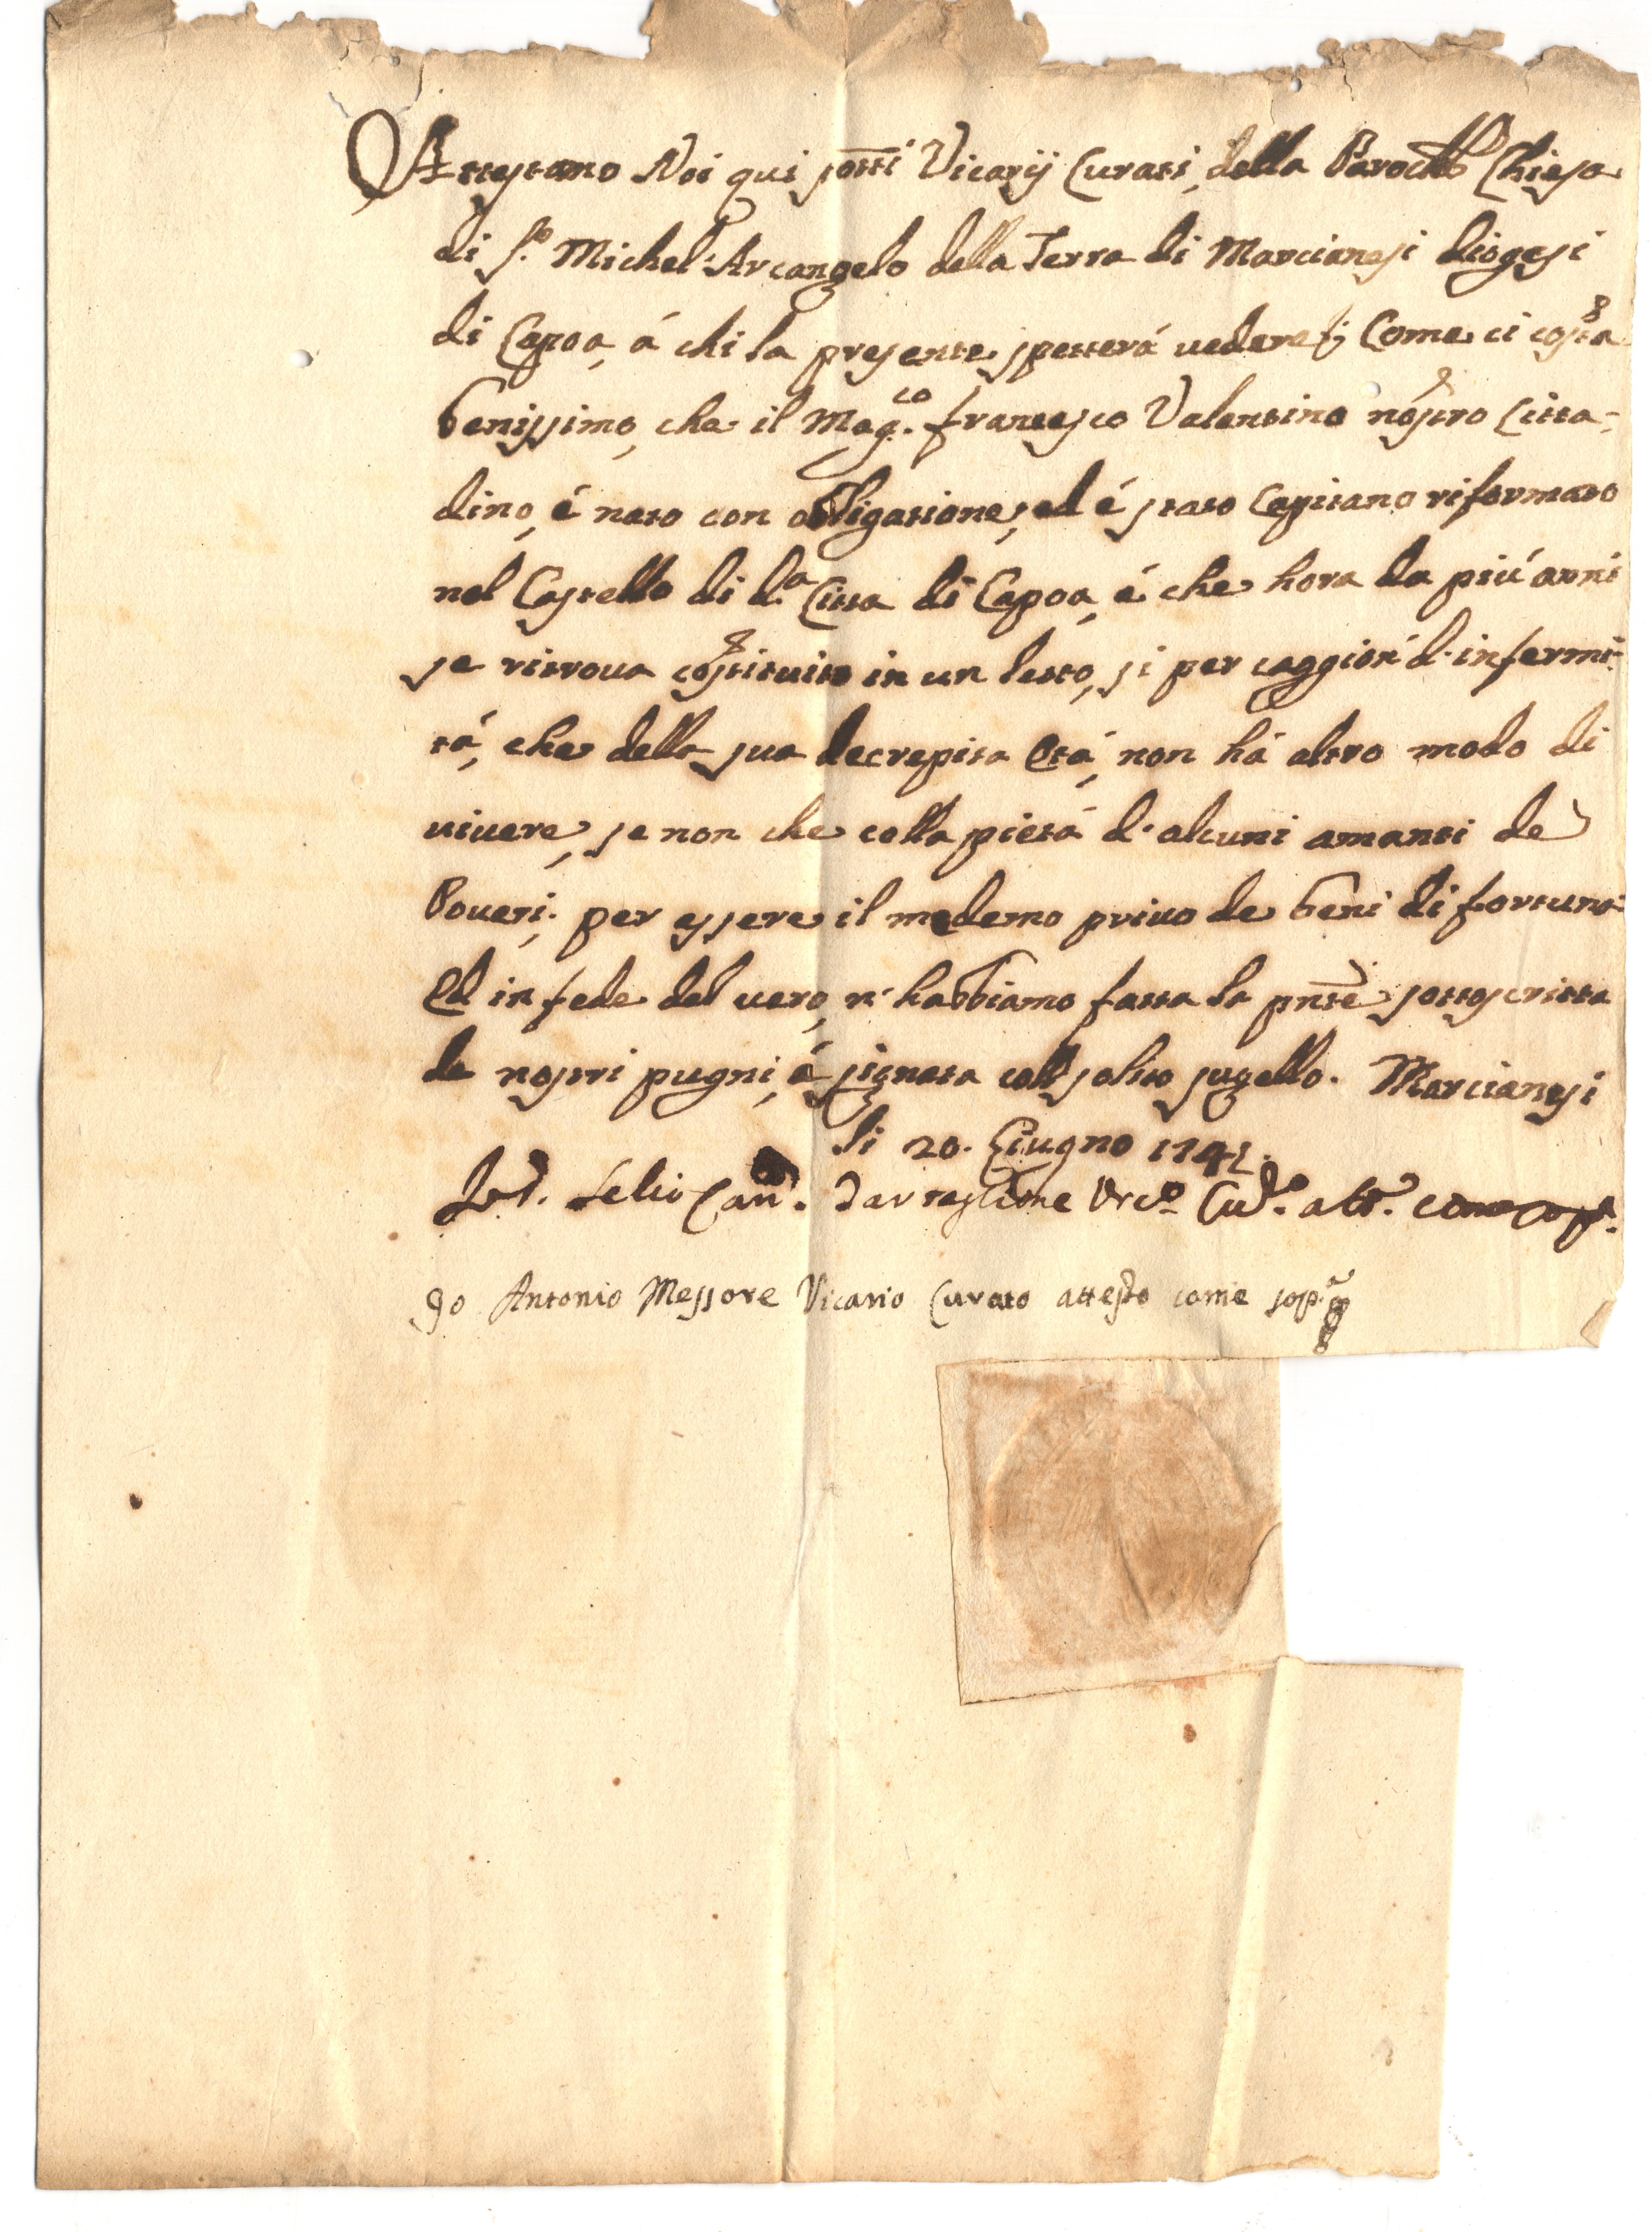 Attestamo Noi qui sottti Vicarij Curati, della Paroch.le Chiesa
di S.to Michel'Arcangelo della Terra di Marcianesi diogesi
di Capoa, á chi la presente spetterá uedere Come ci costa
benissimo, che il Mag.co Francesco Valentino nostro Citta-
dino, é nato con obligatione, ed é stato Capitano riformato
nel Castello di d.a Citta di Capoa, é che hora da piú anni
se ritroua costituito in un letto, si per caggion' d'infermi-
tá, che della sua decrepita Etá, non há altro modo di
uiuere, se non che colla pietá d'alcuni amanti de
Poueri; per essere il medemo priuo de beni di fortuna
Ed in fede del uero, n'habbiamo fatta la pnte sottoscritta
de nostri pugni, é signata coll solito sugello. Marcianesi
li 20. Giugno 1741.
Lelio Can. Tartaglione Vic.o Cu.to att.o come sop.
Io Antonio Messore Vicario Curato attesto come sop.a